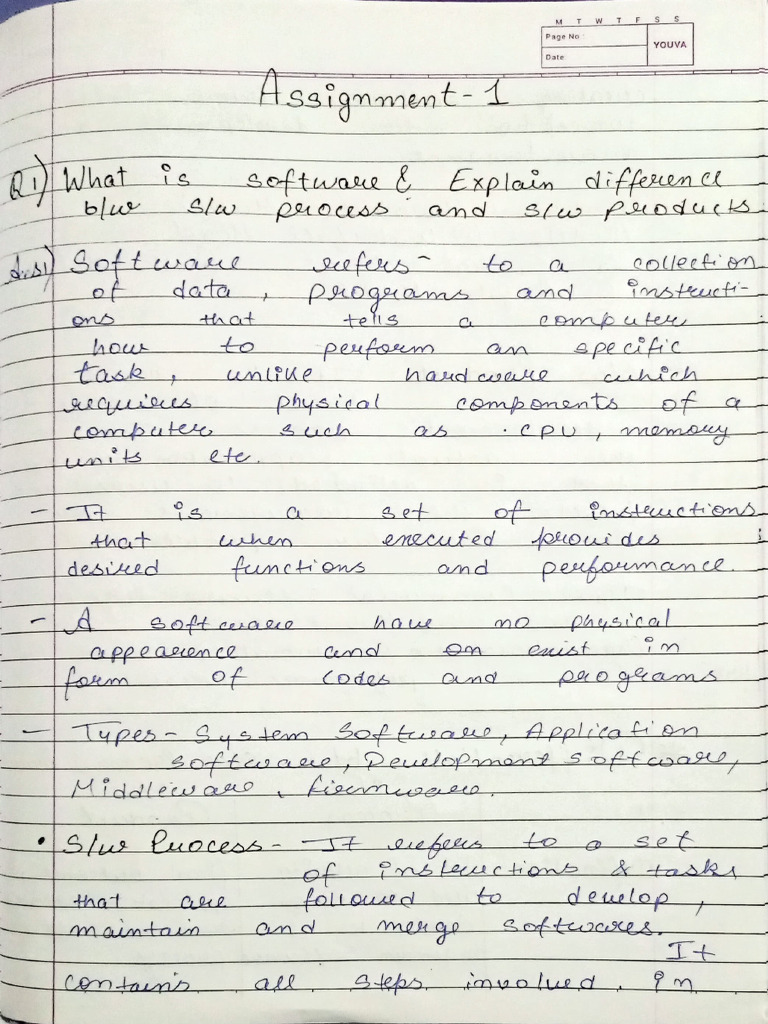 M T W T F S S
Page No.:
Date:
YOUVA
Assignment-1
Q1) What is software & Explain difference
b/w s/w process and s/w products
Ans1) Software refers to a collection
of data, programs and instructi-
ons that tells a computer
how to perform an specific
task, unlike hardware which
requires physical components of a
computer such as CPU, memory
units etc.
- It is a set of instructions
that when executed provides
desired functions and performance.
- A software have no physical
appearence and on exist in
form of codes and programs
- Types- System software, Application
software, Development software,
Middleware, firmware.
• S/w Process- It refers to a set
of instructions & tasks
that are followed to develop,
maintain and merge softwares.
It
contains all steps involved in